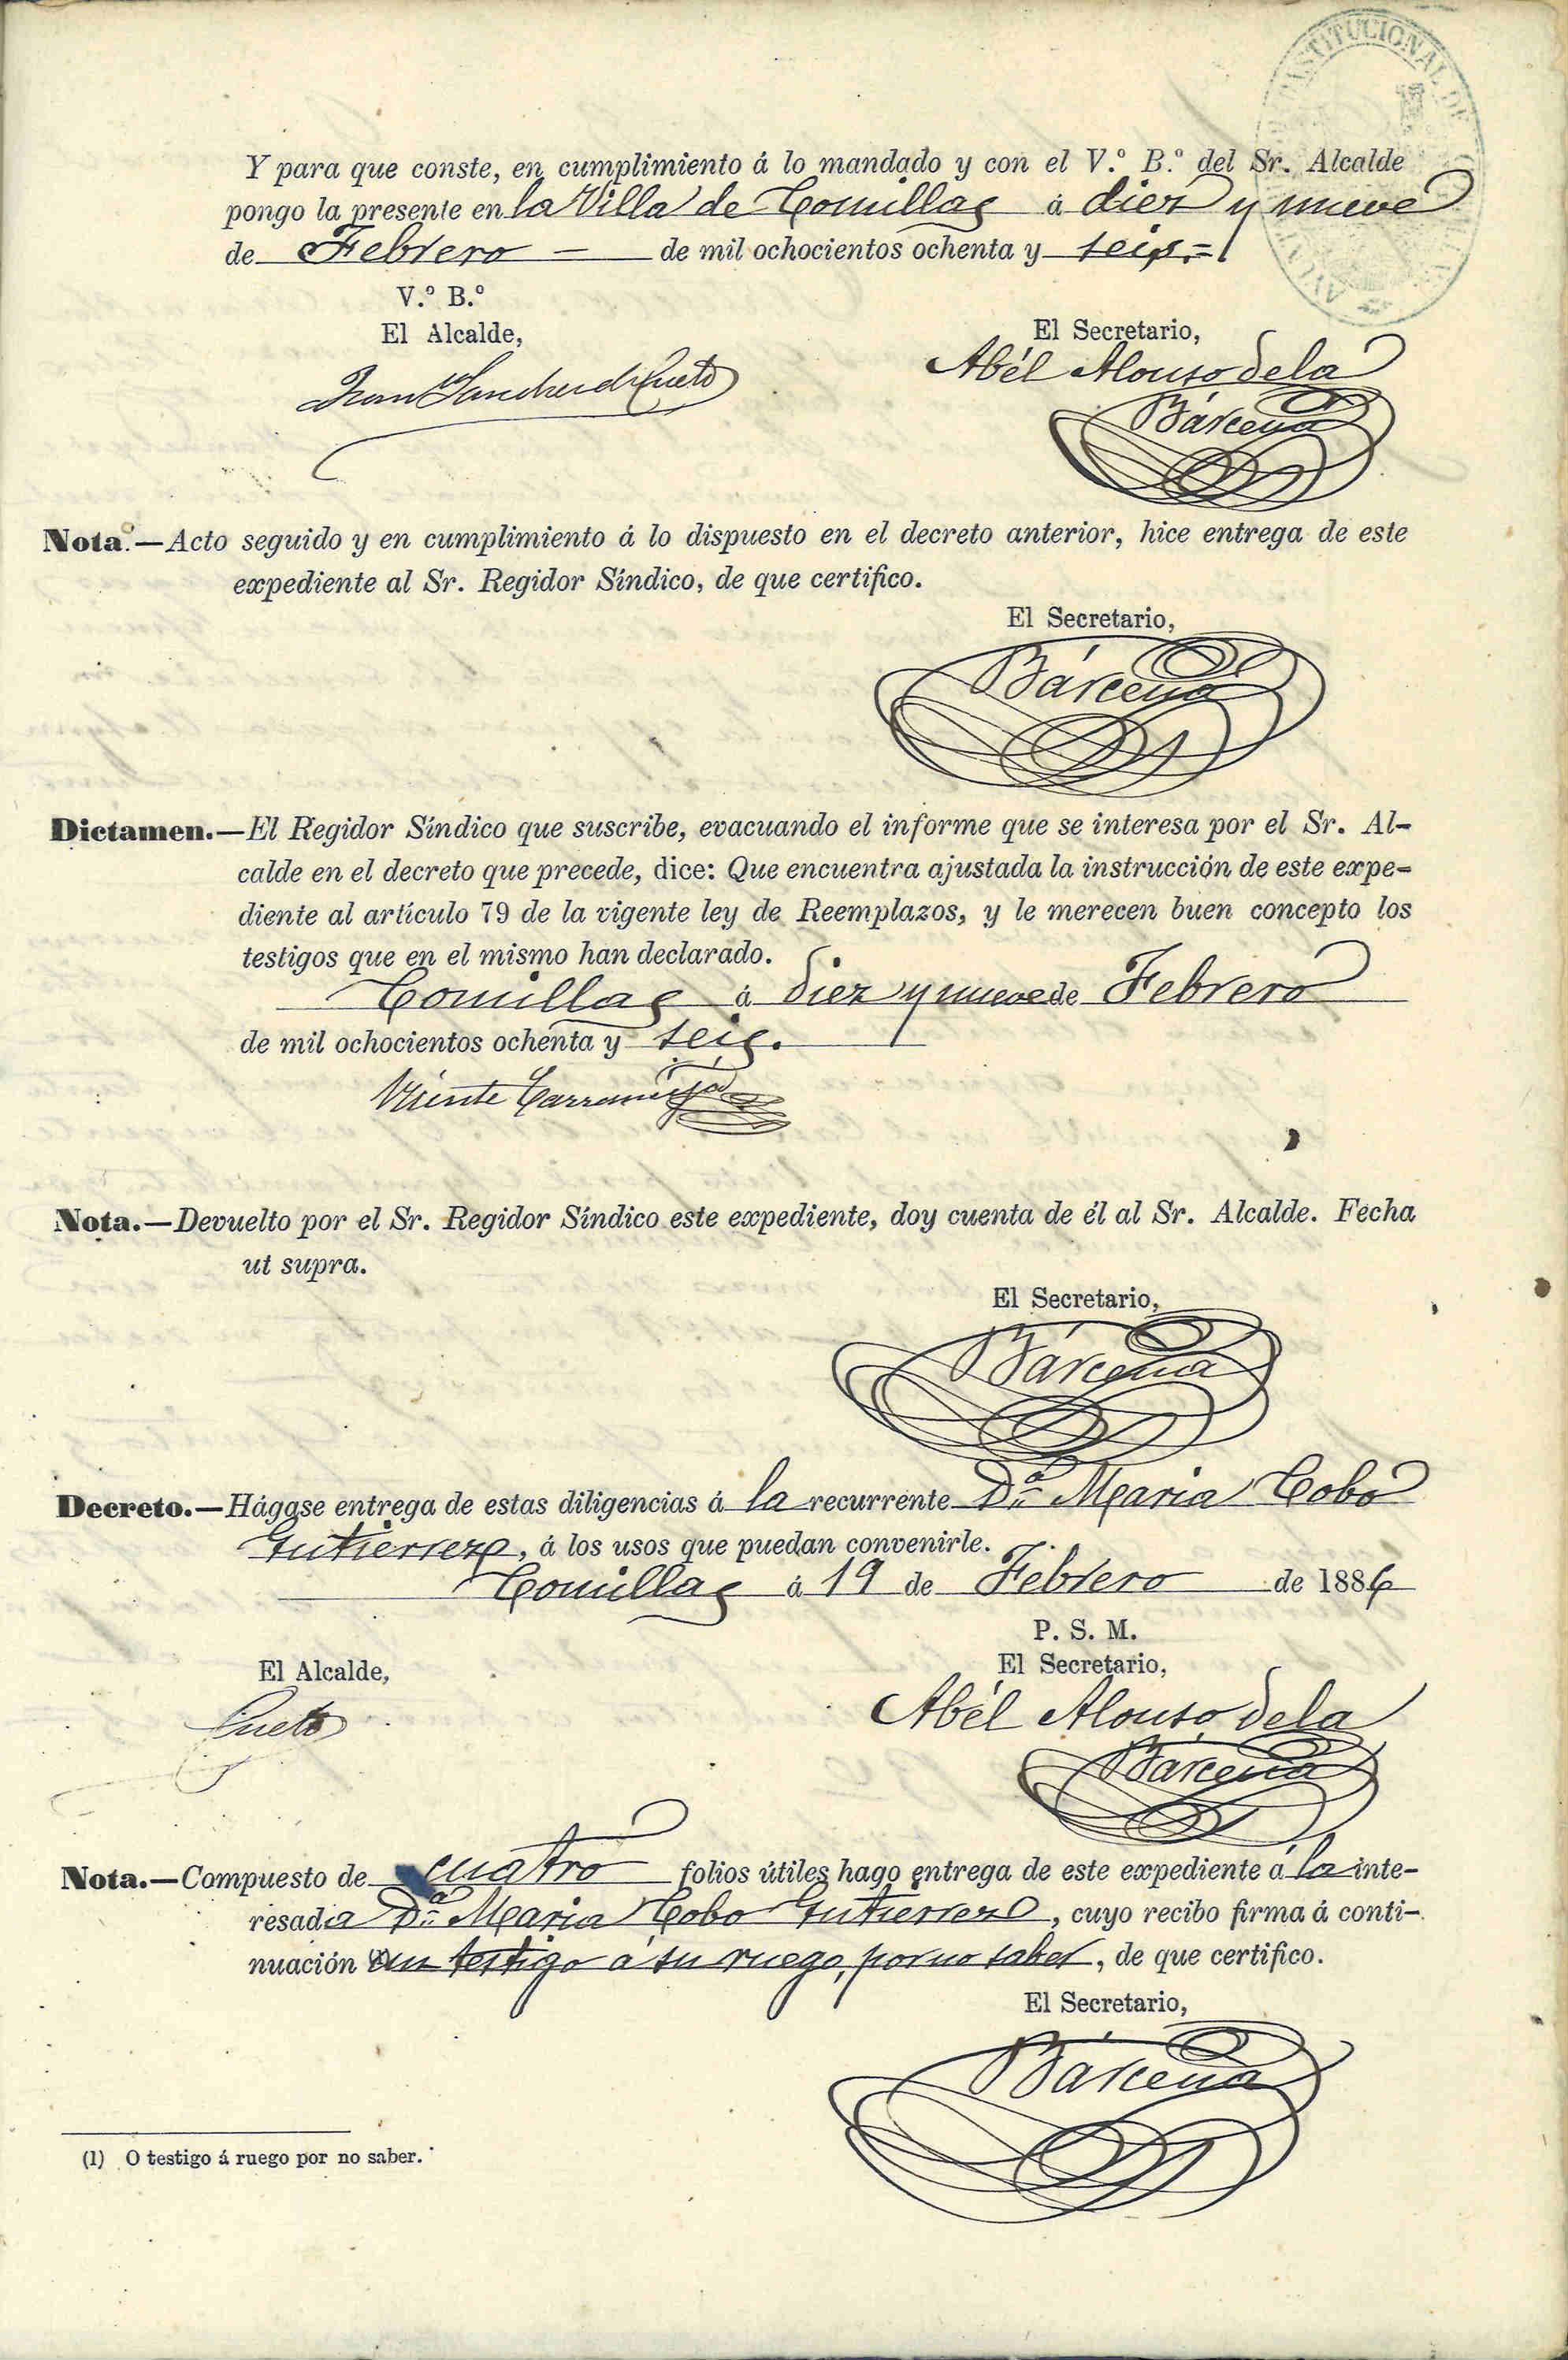 Y para que conste, en cumplimiento á lo mandado y con el V.º B.º del Sr. Alcalde
pongo la presente en la Villa de Comillas á diez y nueve
de Febrero — de mil ochocientos ochenta y seis.=
V.º B.º
El Alcalde,
El Secretario,
Juan Sanchez de Cueto
Abél Alonso de la
Bárcena
Nota.—Acto seguido y en cumplimiento á lo dispuesto en el decreto anterior, hice entrega de este
expediente al Sr. Regidor Síndico, de que certifico.
El Secretario,
Bárcena
Dictamen.—El Regidor Síndico que suscribe, evacuando el informe que se interesa por el Sr. Al-
calde en el decreto que precede, dice: Que encuentra ajustada la instrucción de este expe-
diente al artículo 79 de la vigente ley de Reemplazos, y le merecen buen concepto los
testigos que en el mismo han declarado.
Comillas á diez y nueve de Febrero
de mil ochocientos ochenta y seis.
Vicente
Nota.—Devuelto por el Sr. Regidor Síndico este expediente, doy cuenta de él al Sr. Alcalde. Fecha
ut supra.
El Secretario,
Bárcena
Decreto.—Hágase entrega de estas diligencias á la recurrente D.ª Maria Cobo
Gutierrez, á los usos que puedan convenirle.
Comillas á 19 de Febrero de 1886
P. S. M.
El Alcalde,
El Secretario,
Cueto
Abél Alonso de la
Bárcena
Nota.—Compuesto de cuatro folios útiles hago entrega de este expediente á la inte-
resada D.ª Maria Cobo Gutierrez, cuyo recibo firma á conti-
nuación un testigo a su ruego, por no saber, de que certifico.
El Secretario,
Bárcena
(1) O testigo á ruego por no saber.